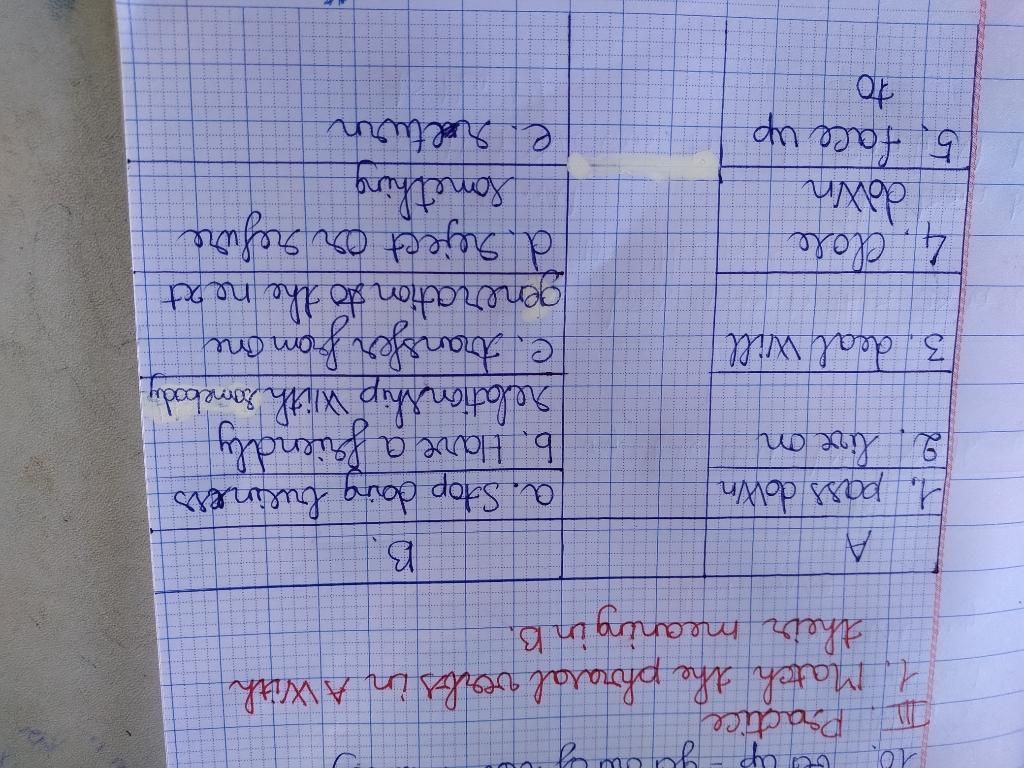 10.
III. Practice
1. Match the phrasal verbs in A With
their meaning in B.
A
B.
1. pass down
a. Stop doing business
2. live on
b. Have a friendly
relationship With somebody
3. deal Will
c. transfer from one
generation to the next
4. Close
down
d. reject or refuse
something
5. face up
to
e. return